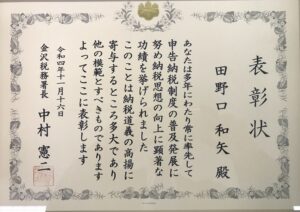 表彰状
田野口 和矢 殿
あなたは多年にわたり常に率先して
申告納税制度の普及発展に
努め納税思想の向上に顕著な
功績を挙げられました
このことは納税道義の高揚に
寄与するところ多大であり
他の模範とすべきものであります
よってここに表彰します
令和四年十一月十六日
金沢税務署長
中村 憲二